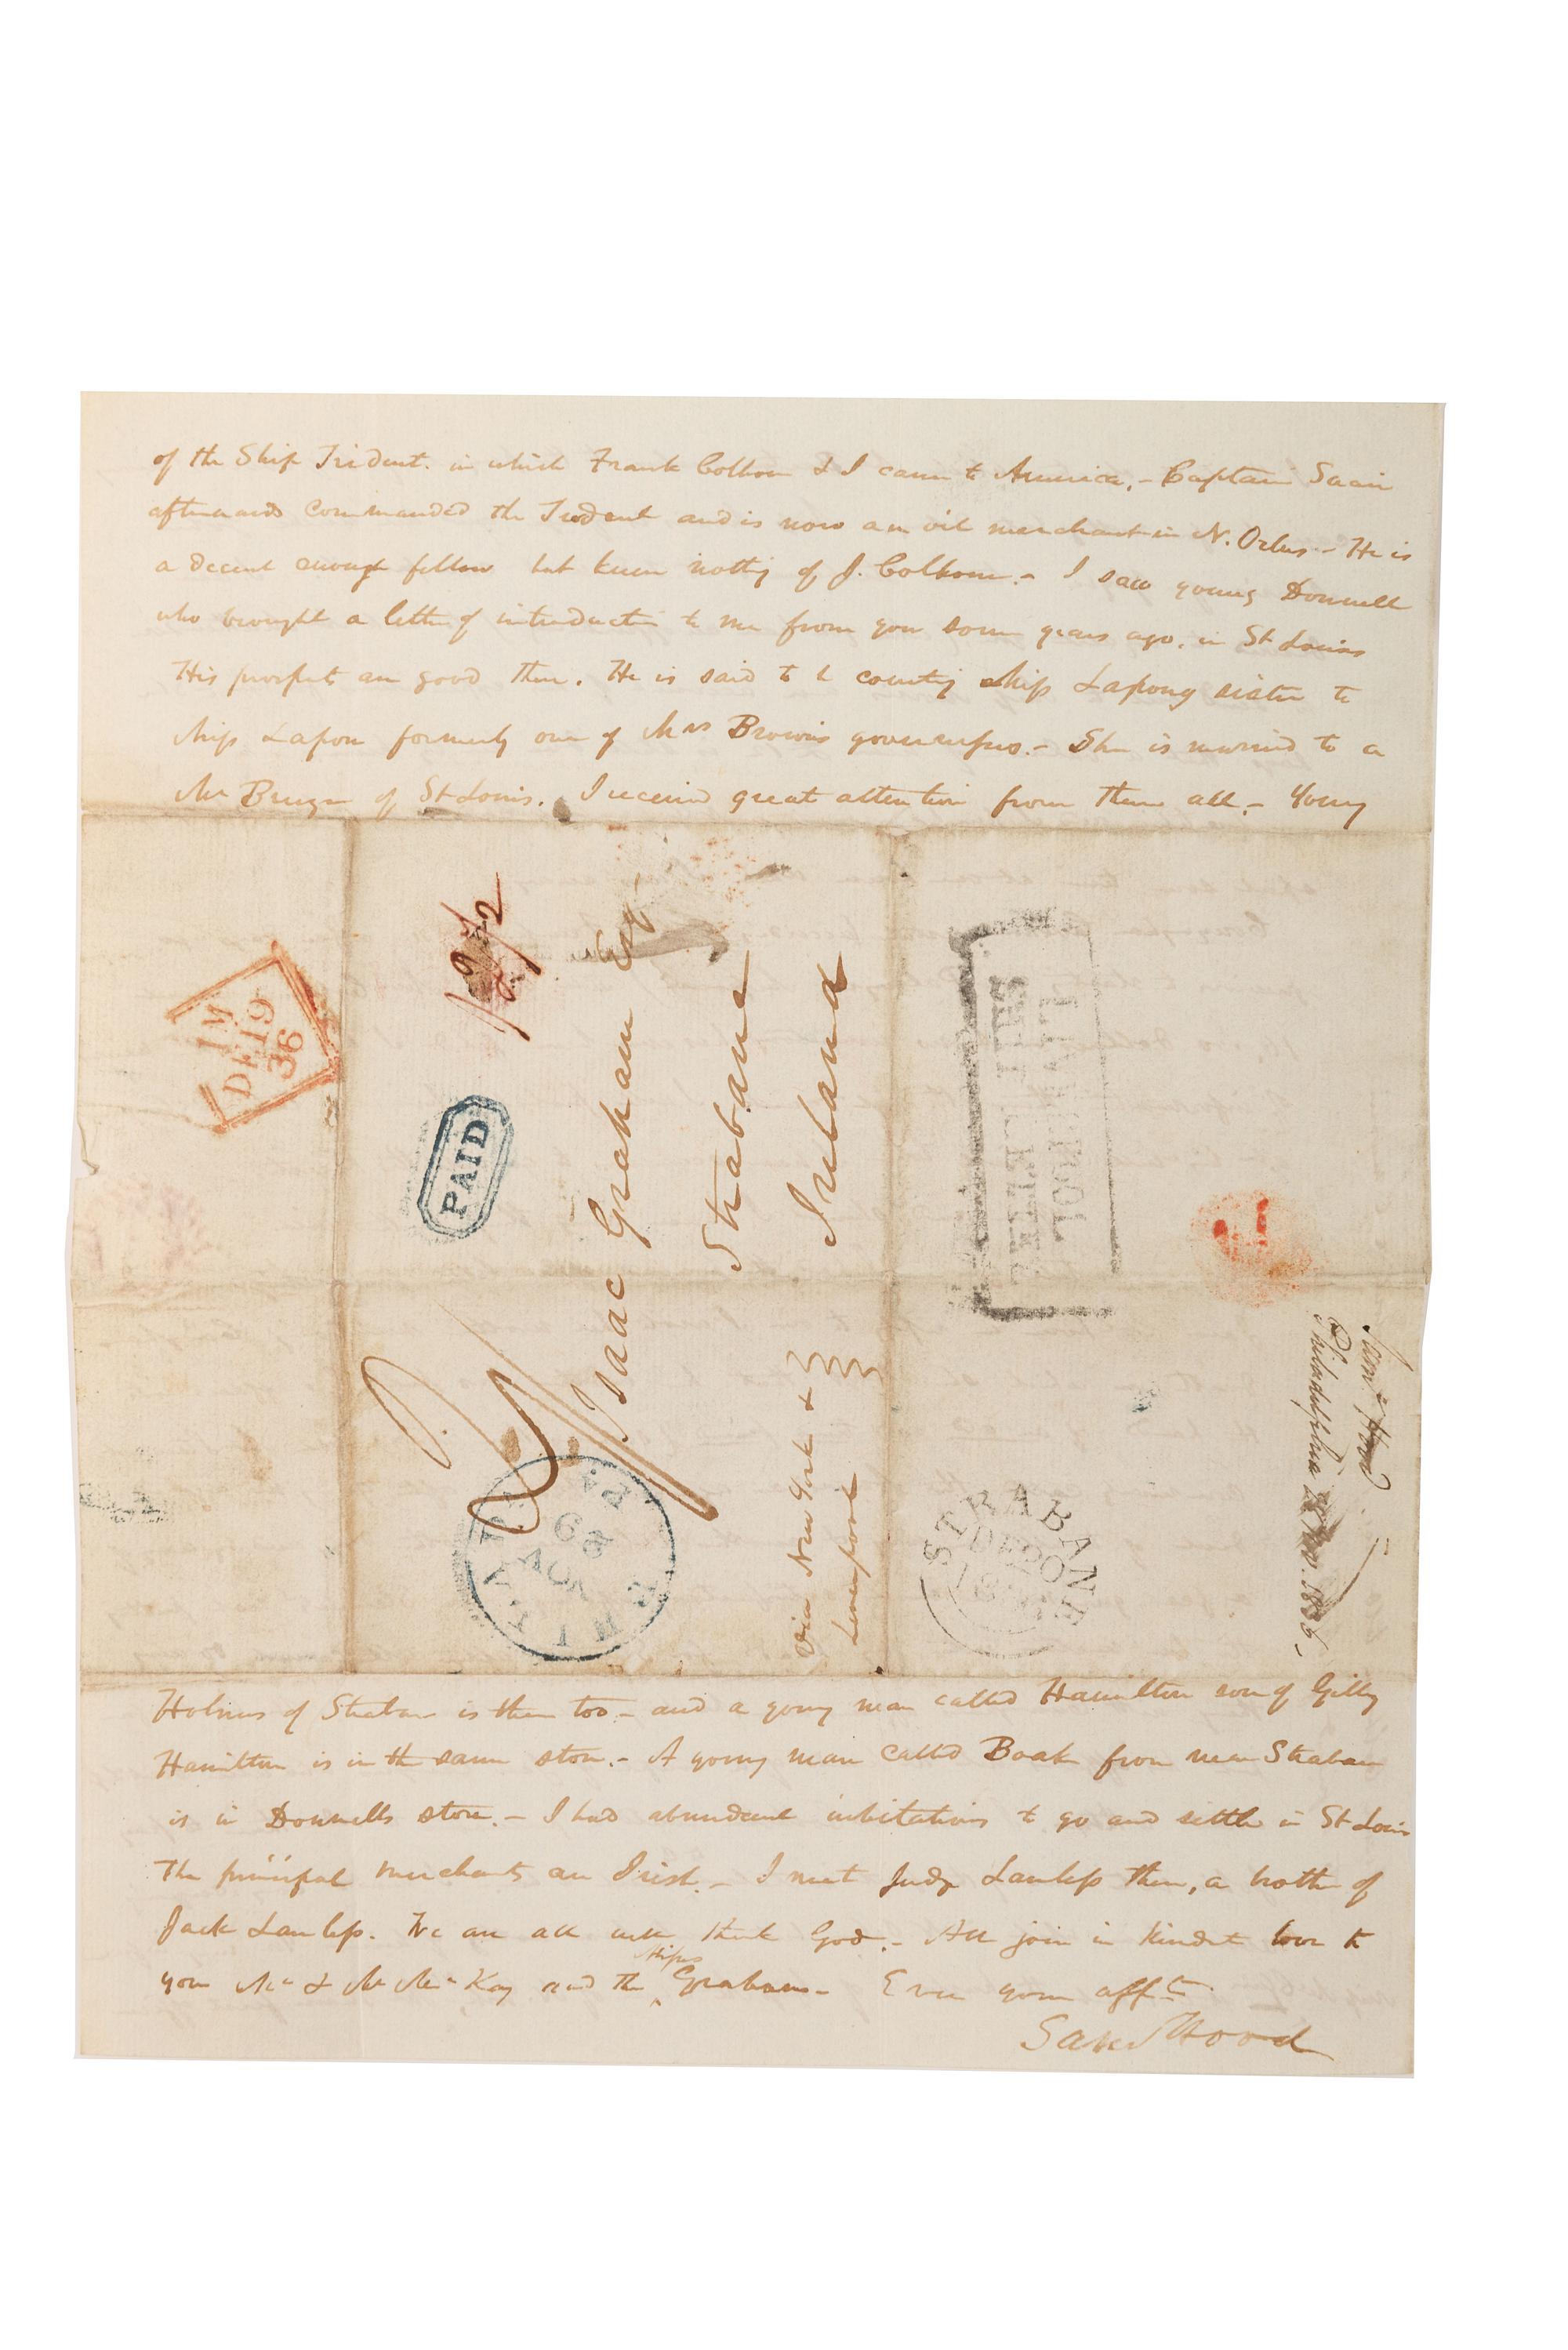 of the Ship Trident. in which Frank Colhoun & I came to America. - Captain
afterwards commanded the Trident and is now an oil merchant in N. Orlns - He is
a decent enough fellow but knew nothing of J. Colhoun. - I saw young Donnell
who brought a letter of introduction to me from you some years ago. in St Louis
His prospects are good there. He is said to be courting Miss Lapong sister to
Miss Lapon formerly one of Mrs Browns governesses. - She is married to a
Mr of St Louis. I received great attention from them all. - Young
1 M
DE 19
36
PAID
Isaac Graham Esq
Strabane
Ireland
Via New York &
Liverpool
PHILADA PA
NOV
29
LIVERPOOL
SHIP LETTER
STRABANE
Saml Hood
Philadelphia 28 Nov. 1836
Holmes of Strabane is there too - and a young man called Hamilton son of Gilly
Hamilton is in the same store. - A young man called Boak from near Strabane
is in Donnells store. - I had abundant invitations to go and settle in St Louis
The principal merchants are Irish. - I met Judge Lawless there, a brother of
Jack Lawless. We are all well thank God. - All join in kindest love to
you Mr & Mrs McKay and the Miss Grahams - Ever your afft
Saml Hood